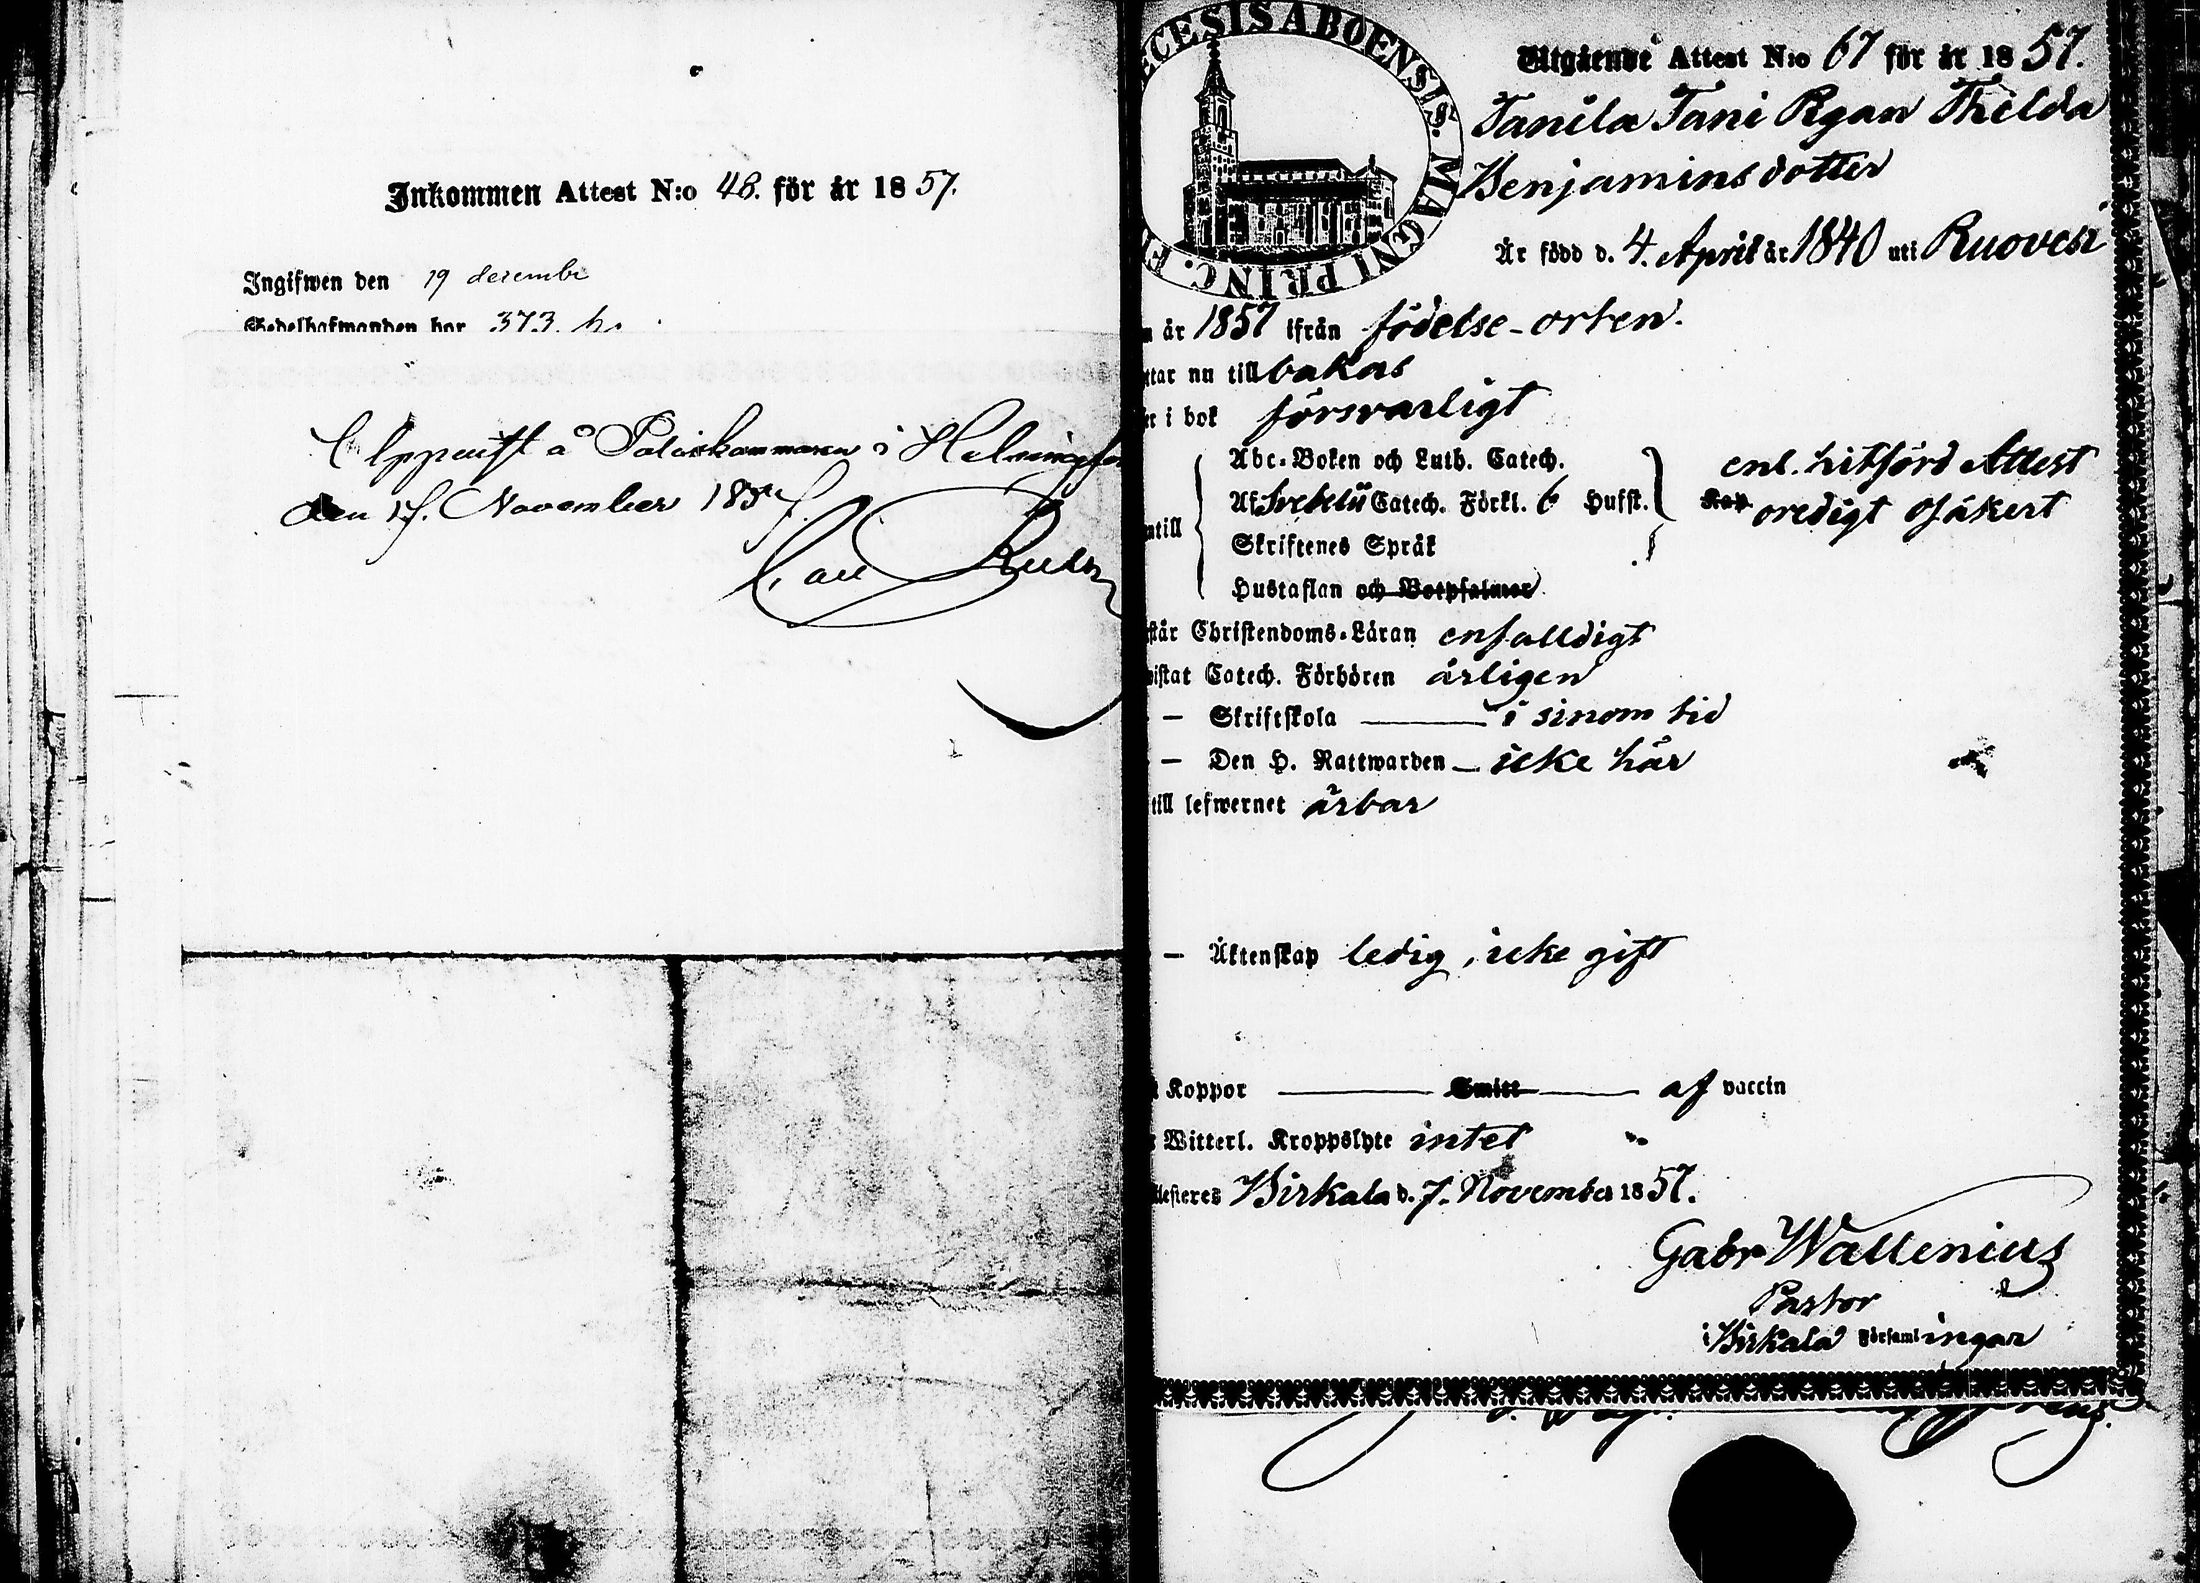 Inkommen Attest N:o 48. för år 1857.
Ingifwen den 19 decembr
Bedelhafwanden har 373.
Uppvist å Poliskammaren i Helsingfor
den 17. November 1857.
Carl
ECESIS ABOENSIS. MAGNI PRINC. F
Utgående Attest N:o 67 för år 1857.
Tanila Tani Pgan Thilda
Benjaminsdotter
Är född d. 4. April år 1840 uti Ruovesi
n år 1857 ifrån födelse-orten.
ttar nu tillbakas
er i bok försvarligt
Abc-Boken och Luth. Catech.
Af Svebelii Catech. Förkl. 6 Hufst.
enl. hitförd Attest
oredigt osäkert
ntill
Skriftenes Språk
Hustaflan och Botpsalmer
står Christendoms-Läran enfalldigt
vistat Catech. Förhören årligen
— Skriftskola — i sinom tid
— Den H. Nattwarden — icke här
till lefwernet ärbar
— Äktenskap ledig, icke gift
Koppor — Smitt — af vaccin
r Witterl. Kroppslyte intet
ttesteres Birkala d. 7. November 1857.
Gabr Wallenius
Pastor
i Birkala Församlingar